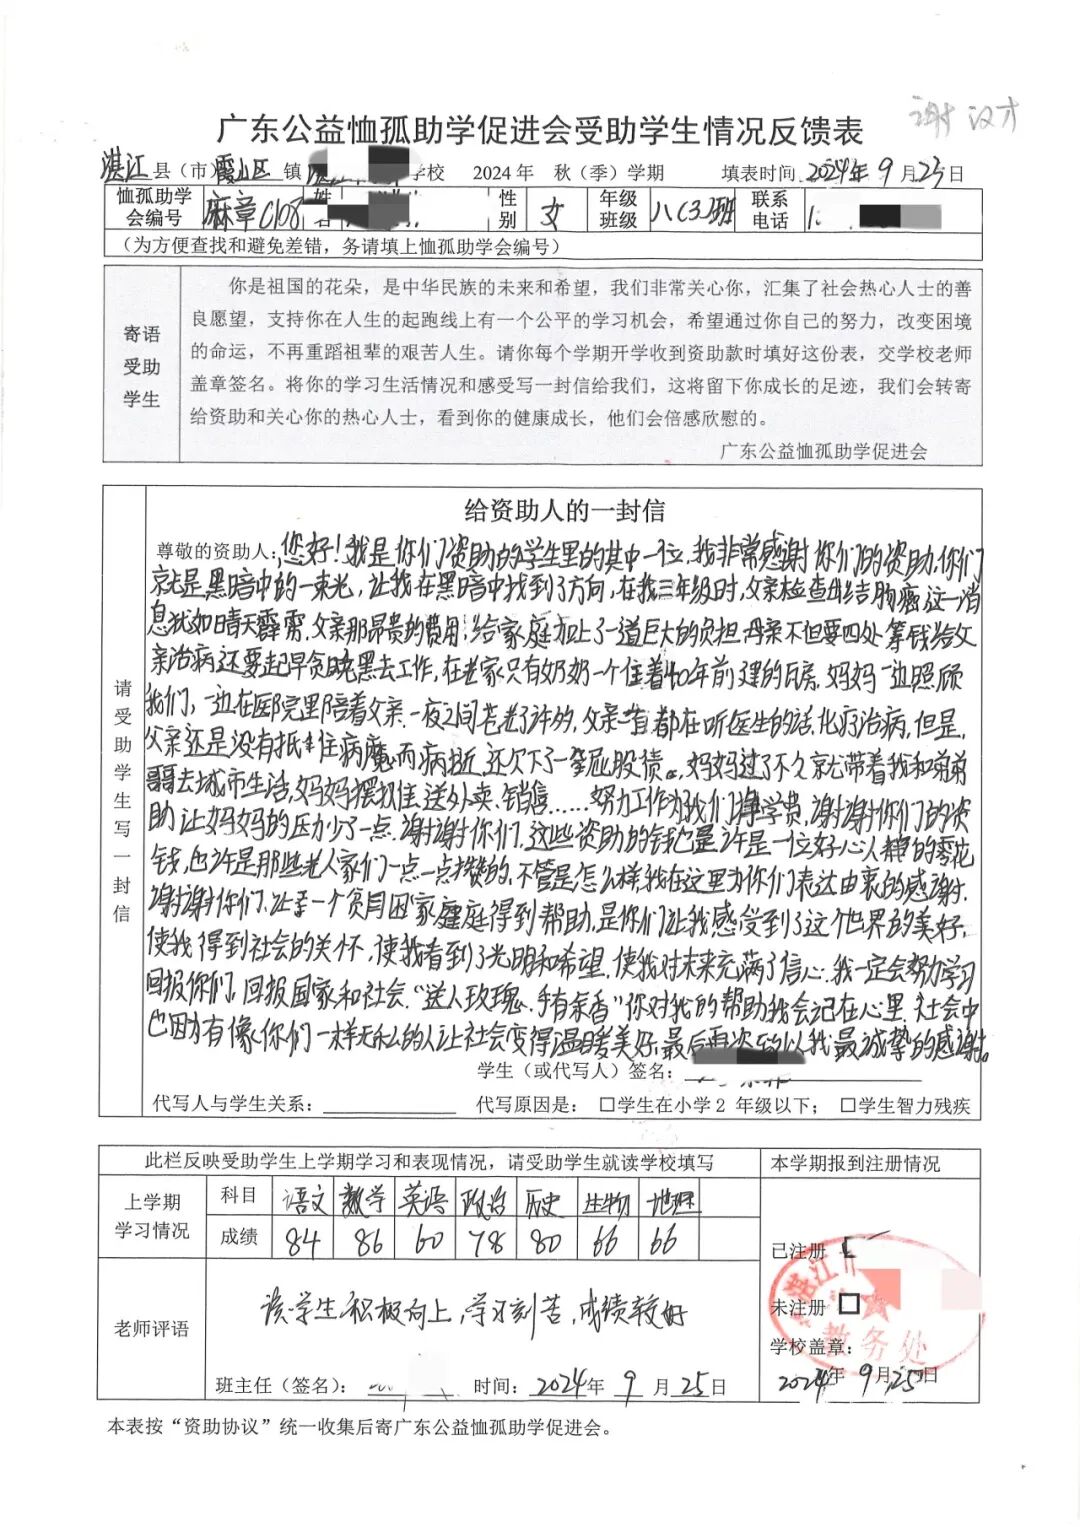 谢汉才
广东公益恤孤助学促进会受助学生情况反馈表
湛江县（市霞山区镇 学校 2024年 秋（季）学期 填表时间 2024年9月23日
恤孤助学会编号 麻章C108 姓名 性别 女 年级班级 八(3)班 联系电话 1
（为方便查找和避免差错，务请填上恤孤助学会编号）
寄语受助学生
你是祖国的花朵，是中华民族的未来和希望，我们非常关心你，汇集了社会热心人士的善
良愿望，支持你在人生的起跑线上有一个公平的学习机会，希望通过你自己的努力，改变困境
的命运，不再重蹈祖辈的艰苦人生。请你每个学期开学收到资助款时填好这份表，交学校老师
盖章签名。将你的学习生活情况和感受写一封信给我们，这将留下你成长的足迹，我们会转寄
给资助和关心你的热心人士，看到你的健康成长，他们会倍感欣慰的。
广东公益恤孤助学促进会
请受助学生写一封信
给资助人的一封信
尊敬的资助人：您好！我是你们资助的学生里的其中一位，我非常感谢你们的资助，你们
就是黑暗中的一束光，让我在黑暗中找到了方向，在我三年级时，父亲检查出结肠癌，这一消
息犹如晴天霹雳，父亲那昂贵的费用，给家庭加上了一道巨大的负担，母亲不但要四处筹钱给父
亲治病还要起早贪晚黑去工作，在老家只有奶奶一个住着40年前建的瓦房，妈妈一边照顾
我们，一边在医院里陪着父亲，一夜之间苍老了许多，父亲一直都在听医生的话，化疗治病，但是，
父亲还是没有抵住病魔而病逝，还欠下了一屁股债。妈妈过了不久就带着我和弟弟
哥去城市生活，妈妈摆摊、送外卖、销售……努力工作为我们挣学费，谢谢你们的资
助让妈妈的压力少了一点，谢谢你们，这些资助的钱也许是一位好心人的零花
钱，也许是那些老人家们一点一点攒的，不管是怎么样，我在这里为你们表达由衷的感谢，
谢谢你们，让一个贫困家庭得到帮助，是你们让我感受到了这个世界的美好，
使我得到社会的关怀，使我看到了光明和希望，使我对未来充满了信心，我一定会努力学习
回报你们，回报国家和社会，“送人玫瑰，手有余香”你对我的帮助我会记在心里，社会中
也因为有像你们一样无私的人让社会变得温暖美好，最后再次致以我最诚挚的感谢。
学生（或代写人）签名：
代写人与学生关系： 代写原因是： □学生在小学2 年级以下； □学生智力残疾
此栏反映受助学生上学期学习和表现情况，请受助学生就读学校填写 本学期报到注册情况
上学期学习情况
科目 语文 数学 英语 政治 历史 生物 地理
成绩 84 86 60 78 80 66 66
老师评语
该学生积极向上，学习刻苦，成绩较好
班主任（签名）： 时间：2024年9月25日
已注册
未注册 □
学校盖章：
湛江市
教务处
2024年9月25日
本表按“资助协议”统一收集后寄广东公益恤孤助学促进会。